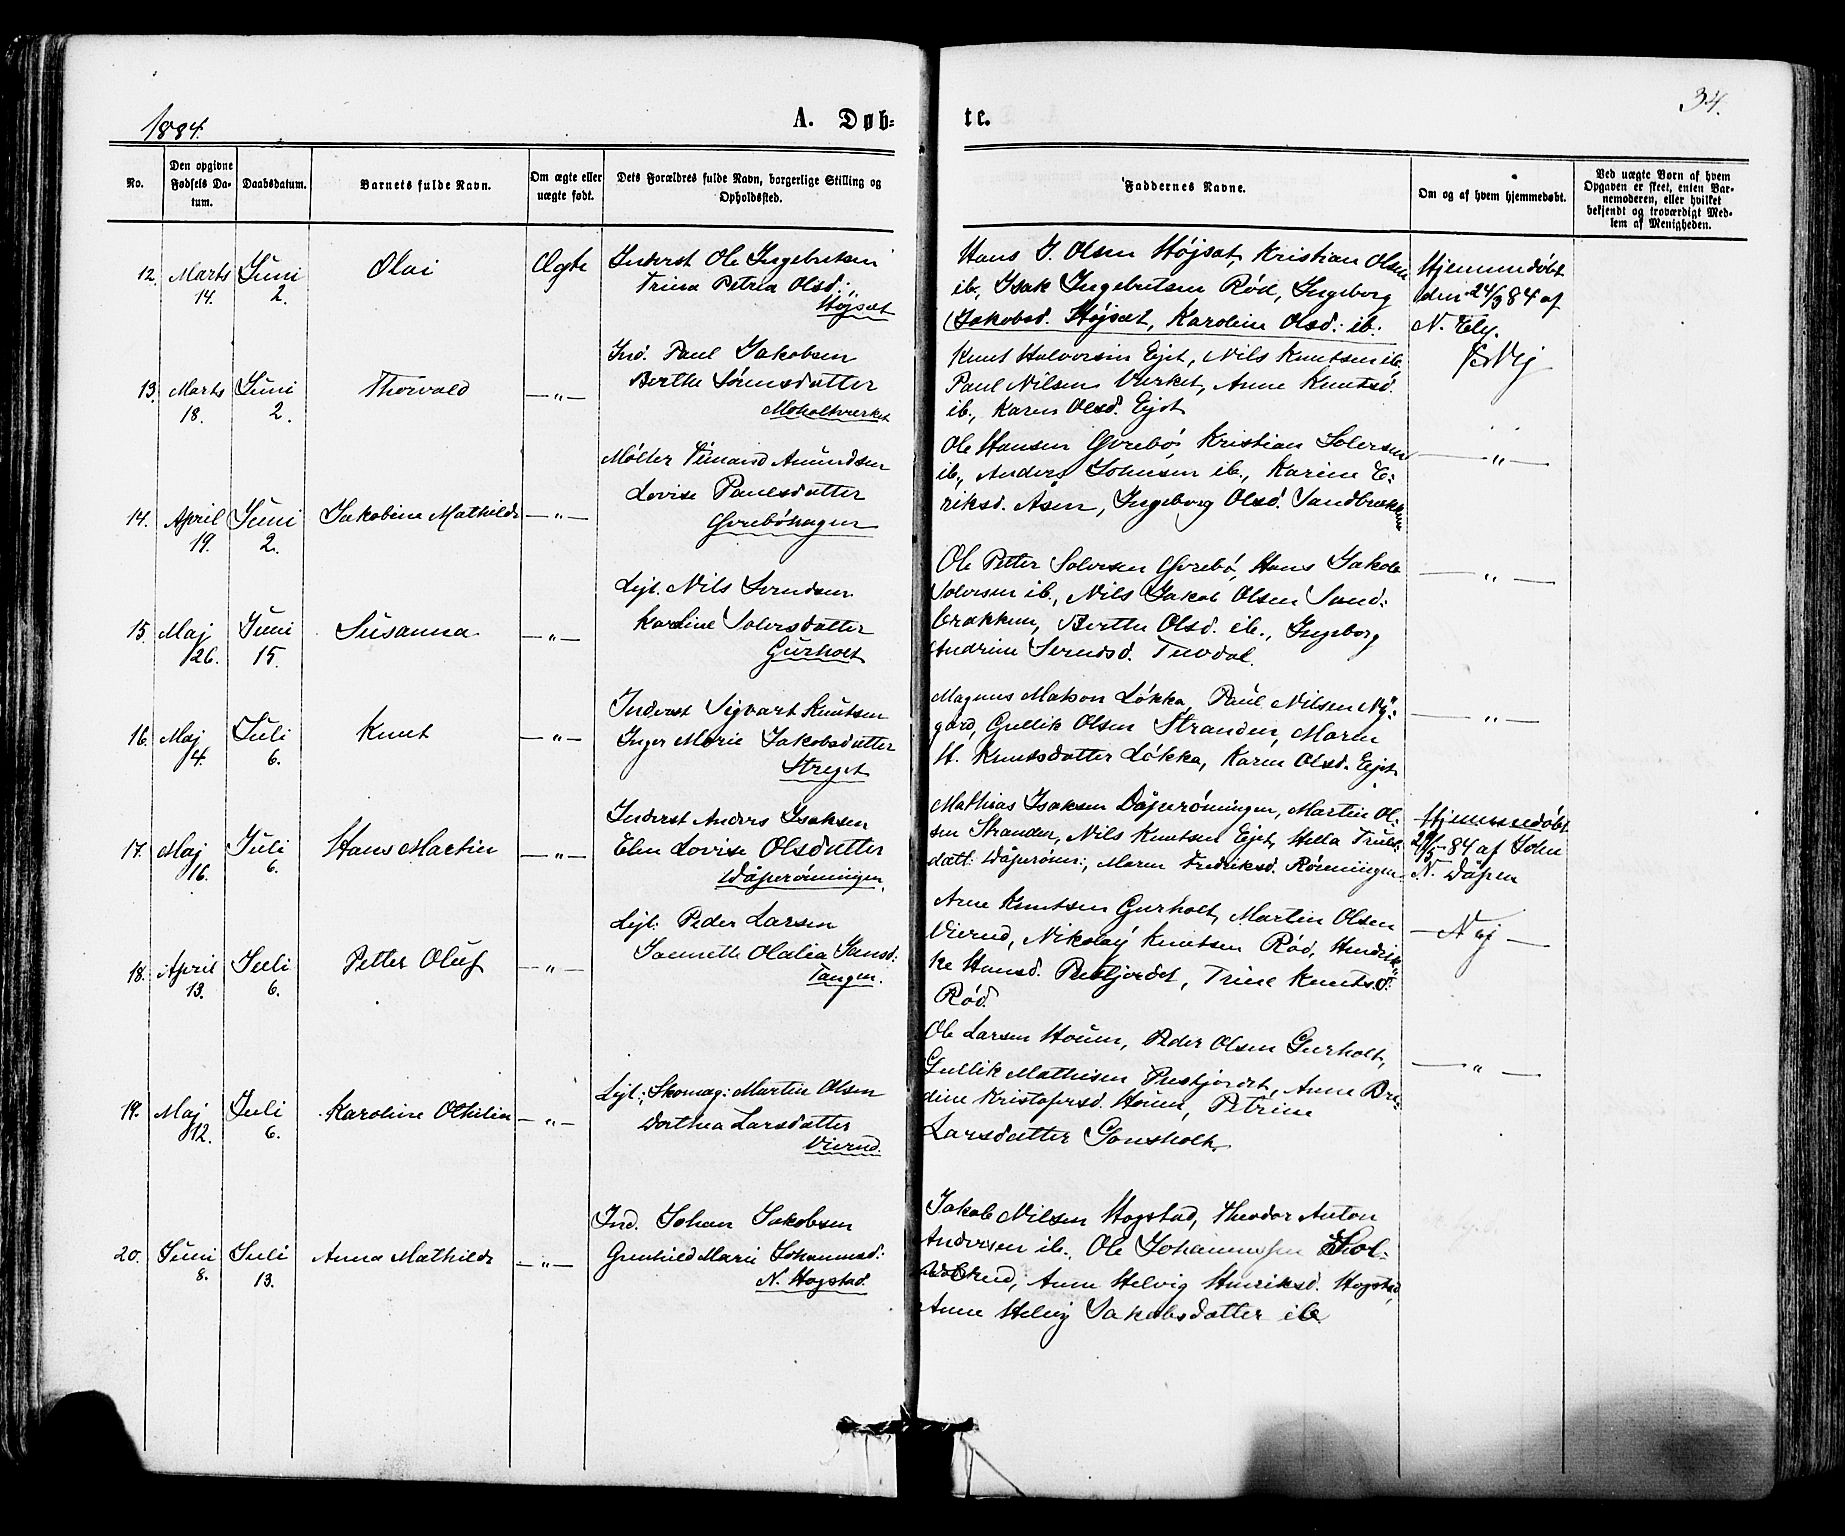 34.
1884.
A. Døb-
te.
No.
Den opgivne Fødsels Da-tum.
Daabsdatum.
Barnets fulde Navn.
Om ægte eller uægte født.
Dets Forældres fulde Navn, borgerlige Stilling og Opholdssted.
Faddernes Navne.
Om og af hvem hjemmedøbt.
Ved uægte Børn af hvem Opgaven er skeet, enten Bar-nemoderen, eller hvilket bekjendt og troværdigt Med-lem af Menigheden.
12. Marts 14. Juni 2. Olai Ægte
Inderst Ole Ingebretsen
Trina Petrea Olsd:,
Højsæt
Hans J. Olsen Højsæt, Kristian Olsen
ib., Isak Ingebretsen Rød, Ingeborg
Jakobsd. Højsæt, Karoline Olsd: ib:
Hjemmedøbt
den 24/3 84 af
N. Ely.
13. Marts 18. Juni 2. Thorvald —"—
Ind. Paul Jakobsen
Berthe Sørensdatter
Moholtværket
Knut Halvorsen Ejet, Nils Knutsen ib.,
Paul Nilsen Værket, Anne Knutsd.
ib., Karen Olsd. Ejet
Nej
14. April 19. Juni 2. Jakobine Mathilde —"—
Møller Simand Amundsen
Lovise Paulsdatter
Øvrebøhagen
Ole Hansen Øvrebø, Kristian Solvesen
ib., Anders Johnsen ib., Karine E-
riksd. Åsen, Ingeborg Olsd. Sandbrækken
—"—
15. Maj 26. Juni 15. Susanna —"—
Lejl. Nils Svendsen
Karoline Solvesdatter
Gurholt
Ole Petter Solvesen Øvrebø, Hans Jakob
Solvesen ib., Nils Jakob Olsen Sand-
brækken, Berthe Olsd. ib., Ingeborg
Andrine Svendsd.
—"—
16. Maj 4. Juli 6. Knut —"—
Inderst Sigvart Knutsen
Inger Marie Jakobsdatter
Stryet
Magnus Matson Løkka, Paul Nilsen Ny-
gård, Gullik Olsen Stranden, Maren
H. Knutsdatter Løkka, Karen Olsd. Ejet
—"—
17. Maj 16. Juli 6. Hans Martin —"—
Inderst Anders Isaksen
Elen Lovise Olsdatter
Dåpanrønningen
Mathias Isaksen Dåpanrønningen, Martin Ol-
sen Stranden, Nils Knutsen Ejet, Hella Truls-
datt: Dåpanrønn:, Maren Fredriksd. Rønningen
Hjemmedøbt
84 af John
N. Dåpan
18. April 13. Juli 6. Petter Oluf —"—
Lejl: Peder Larsen
Jannette Olalia Jansd:
Tangen.
Arne Knutsen Gurholt, Martin Olsen
Vierud, Nikolay Knutsen Rød, Hendrik-
ke Hansd. Prestjordet, Trine Knutsd.
Rød.
—Nej—
19. Maj 12. Juli 6. Karoline Othilia —"—
Lejl:, Skomag: Martin Olsen
Dorthea Larsdatter
Vierud.
Ole Larsen Houen, Peder Olsen Gurholt,
Gullik Mathisen Prestjordet, Anne Bre-
dine Kristofersd. Houen, Petrine
Larsdatter Gonsholt
—"—
20. Juni 8. Juli 13. Anna Mathilde —"—
Ind. Johan Jakobsen
Gunhild Marie Johannesd:
N. Hogstad
Jakob Nilsen Hogstad, Theodor Anton
Andersen ib., Ole Johannessen
Anne Helvig Henriksd. Hogstad,
Anne Helvig Jakobsdatter ib.